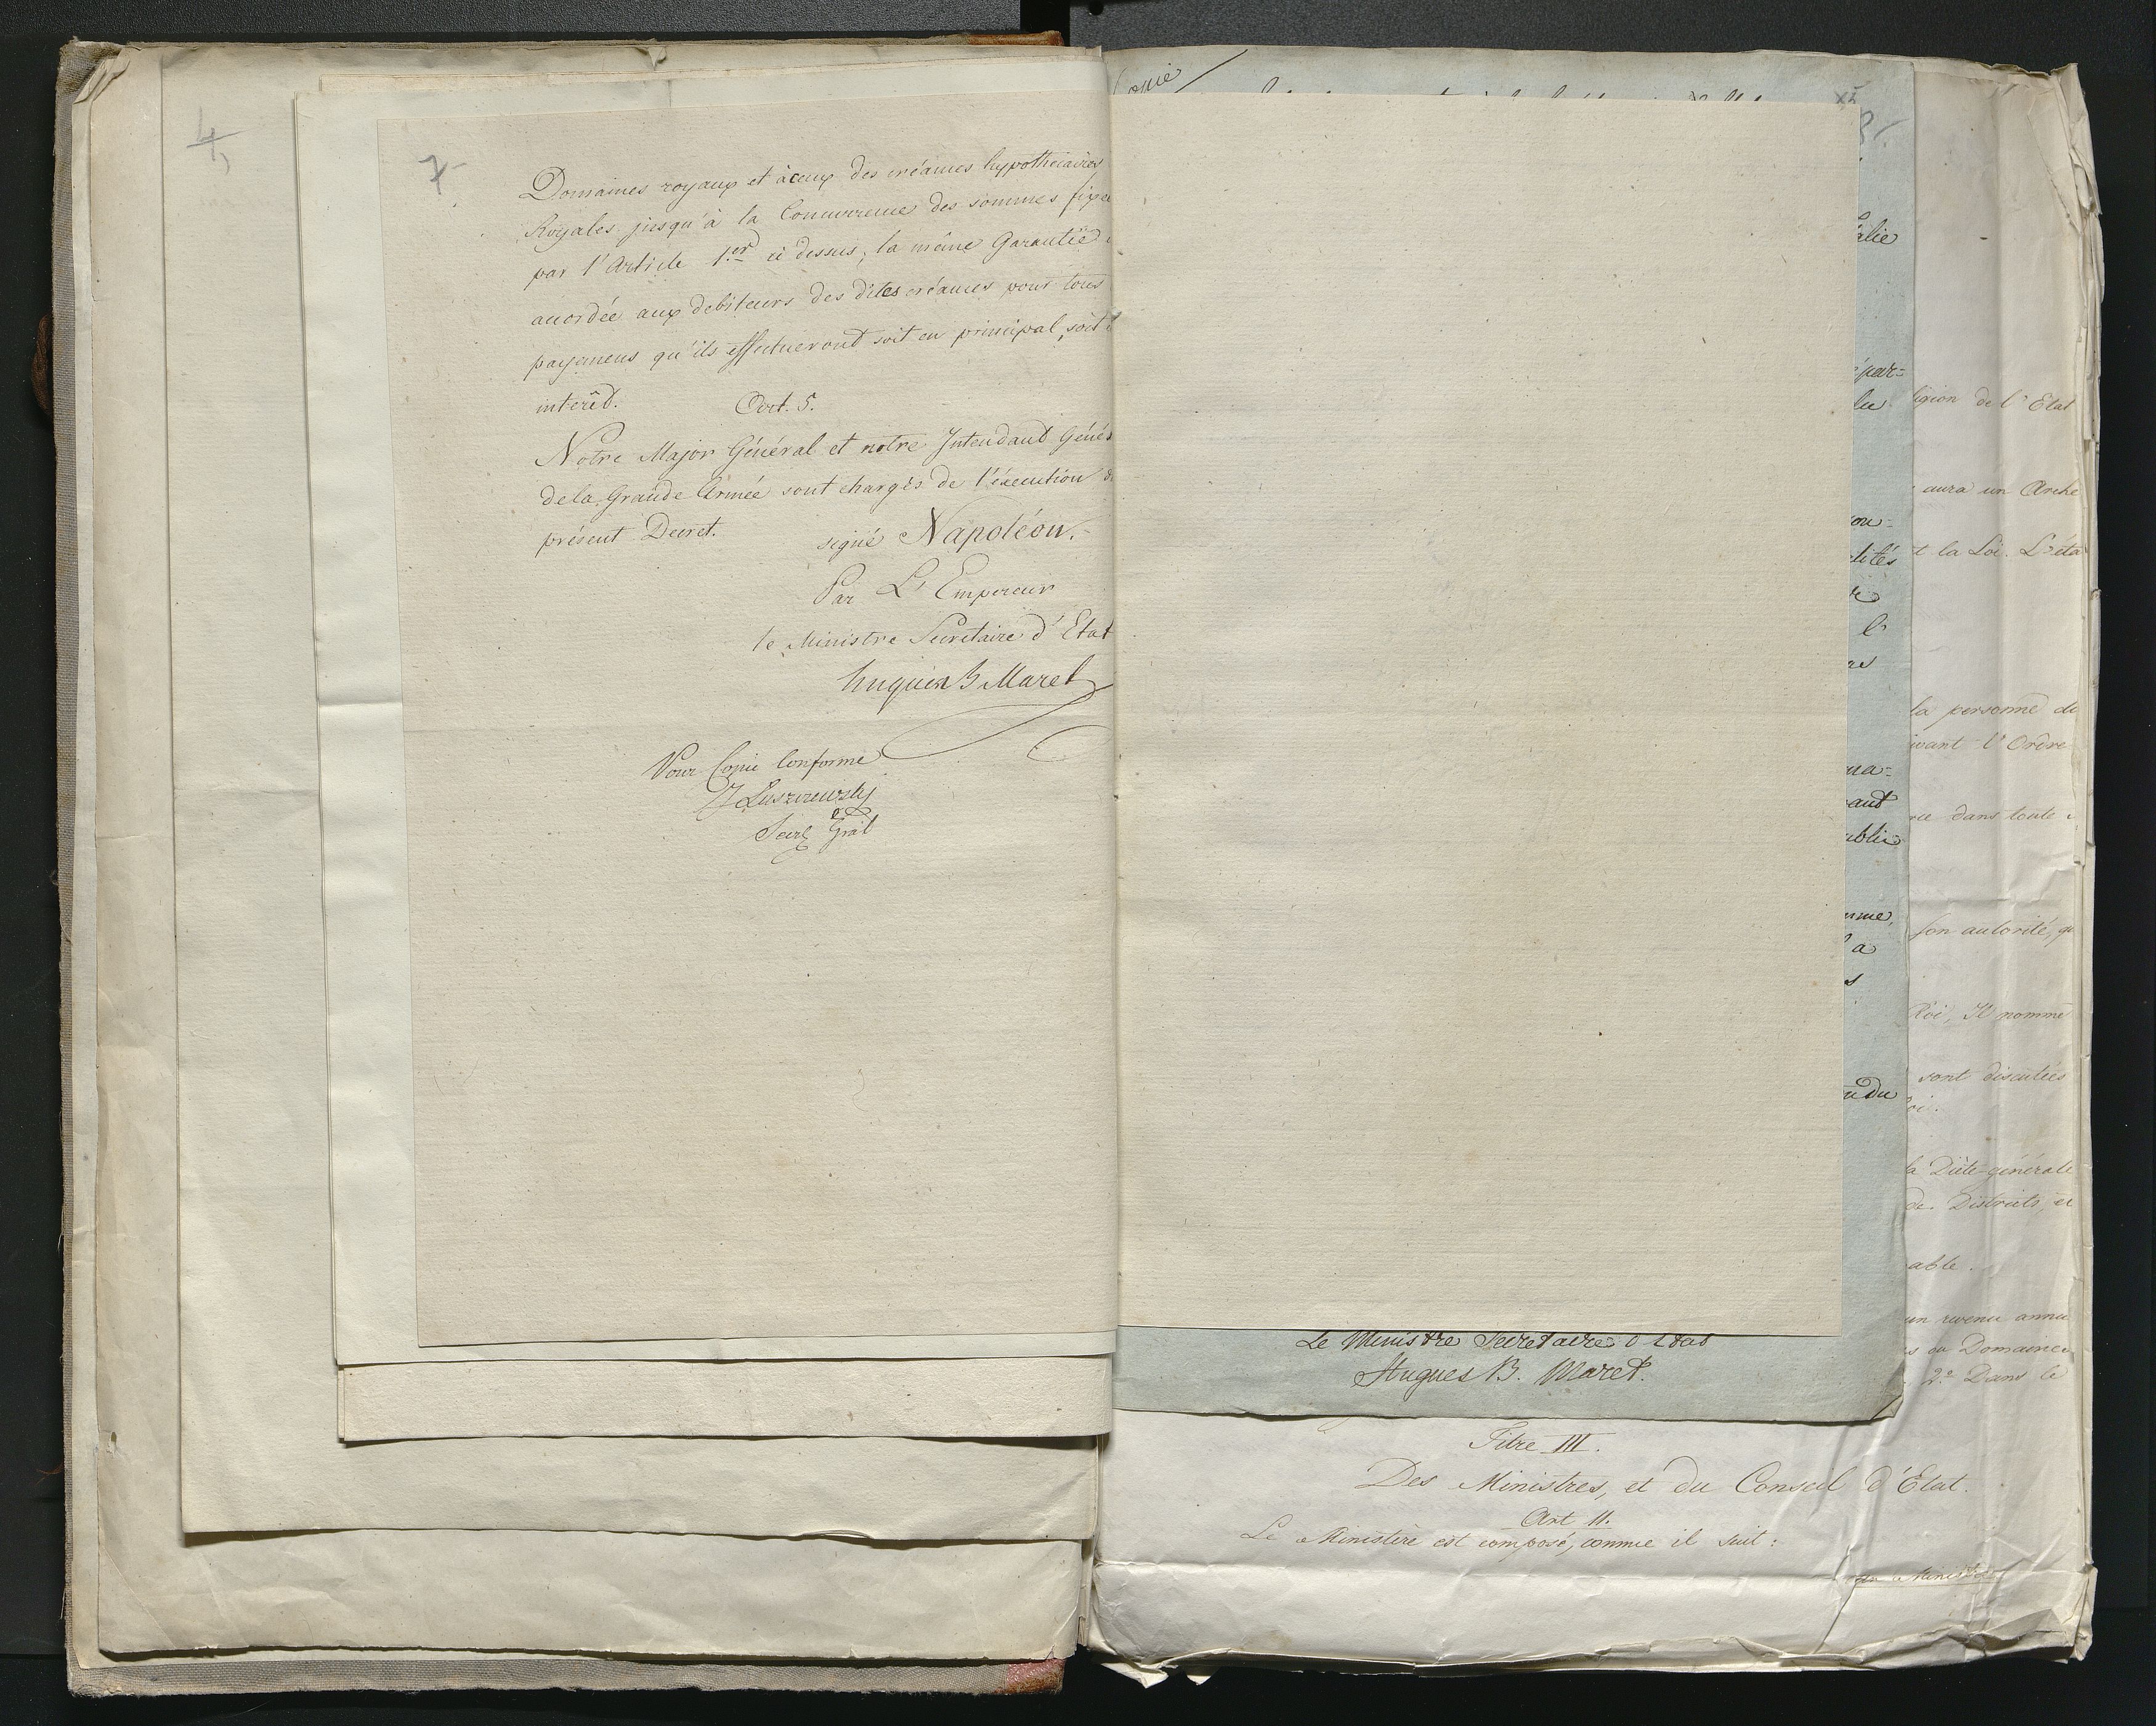 4
7
Domaines royaux et à ceux des créances hypothécaires
Royales jusqu'à la Concurrence des sommes fixée
par l'Article 1.er ci dessus; la même Garantie
accordée aux debiteurs des dites créances pour tous
payemens qu'ils effectueront soit en principal, soit
interêt.
Art. 5.
Notre Major Général et notre Intendant Géné
de la Grande Armée sont chargés de l'éxecution
présent Decret.
signé Napoléon.
Par L'Empereur
le Ministre Secretaire d'Etat
hugues B Maret
Pour Copie Conforme
Luszczewsky
Secre Gral
Copie
alie
épar=
lu
cou=
lités
l'
ma=
ant
ublic
mme,
a
ndu
Le Ministre Secretaire d'Etat
Hugues B. Maret.
ligion de l'Etat
aura un Arche
t la Loi. L'éta
la personne de
ivant l'Ordre
dans toute
son autorité, qu
Roi, Il nomme
sont discutées
oi.
la Diète générale
de Districts, et
able.
un revenu annu
ou Domaines
2.° Dans le
Titre III.
Des Ministres, et du Conseil d'Etat.
Art 11.
Le Ministère est composé, comme il suit:
Ministre